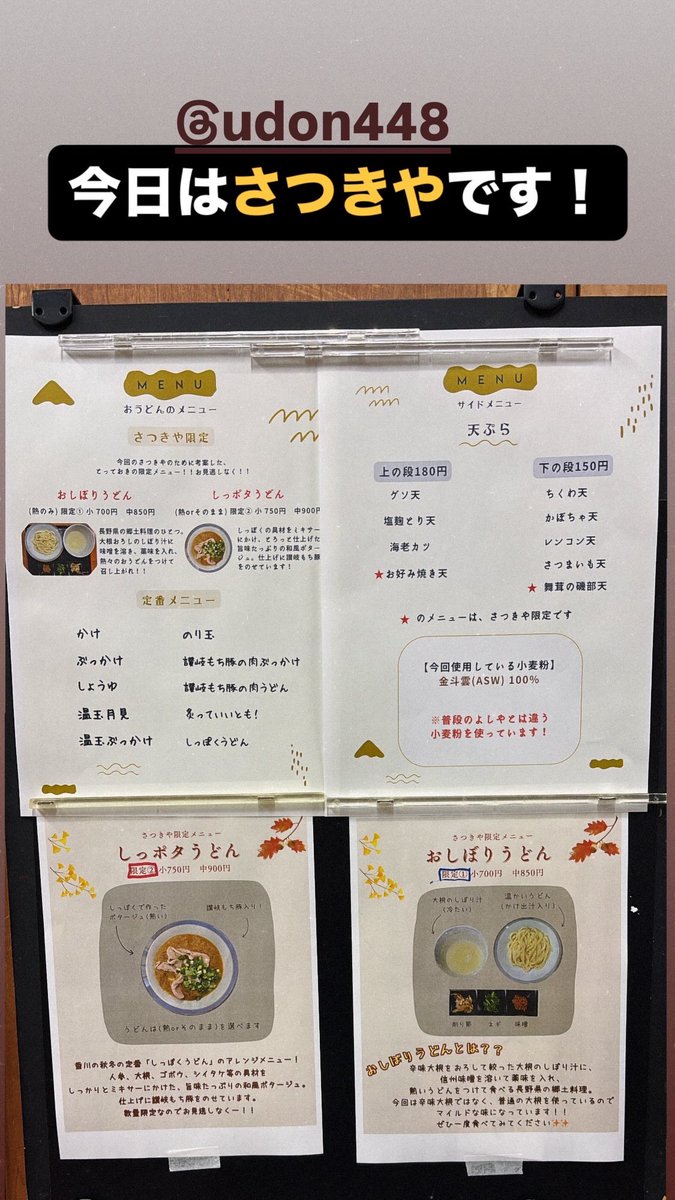 @udon448
今日はさつきやです！
MENU
おうどんのメニュー
さつきや限定
今回のさつきやのために考案した、
とっておきの限定メニュー！！お見逃しなく！！
おしぼりうどん
(熱のみ) 限定① 小 700円 中850円
長野県の郷土料理のひとつ。
大根おろしのしぼり汁に
味噌を溶き、薬味を入れ、
熱々のおうどんをつけて
召し上がれ！！
しっポタうどん
(熱orそのまま) 限定② 小 750円 中900円
しっぽくの具材をミキサー
にかけ、とろっと仕上げた
旨味たっぷりの和風ポター
ジュ。仕上げに讃岐もち豚
をのせています！
定番メニュー
かけ
ぶっかけ
しょうゆ
温玉月見
温玉ぶっかけ
のり玉
讃岐もち豚の肉ぶっかけ
讃岐もち豚の肉うどん
炙っていいとも!
しっぽくうどん
MENU
サイドメニュー
天ぷら
上の段180円
ゲソ天
塩麹とり天
海老カツ
★お好み焼き天
下の段150円
ちくわ天
かぼちゃ天
レンコン天
さつまいも天
★ 舞茸の磯部天
★ のメニューは、さつきや限定です
【今回使用している小麦粉】
金斗雲(ASW) 100%
※普段のよしやとは違う
小麦粉を使っています！
さつきや限定メニュー
しっポタうどん
限定② 小750円 中900円
しっぽくで作った
ポタージュ(熱い)
讃岐もち豚入り！
うどんは(熱orそのまま)を選べます
香川の秋冬の定番「しっぽくうどん」のアレンジメニュー！
人参、大根、ゴボウ、シイタケ等の具材を
しっかりとミキサーにかけた、旨味たっぷりの和風ポタージュ。
仕上げに讃岐もち豚をのせています。
数量限定なのでお見逃しなくー！！
さつきや限定メニュー
おしぼりうどん
限定① 小700円 中850円
大根のしぼり汁
(冷たい)
温かいうどん
(かけ出汁入り)
削り節 ネギ 味噌
おしぼりうどんとは？？
辛味大根をおろして絞った大根のしぼり汁に、
信州味噌を溶いて薬味を入れ、
熱いうどんをつけて食べる長野県の郷土料理。
今回は辛味大根ではなく、普通の大根を使っているので
マイルドな味になっています！！
ぜひ一度食べてみてください✨